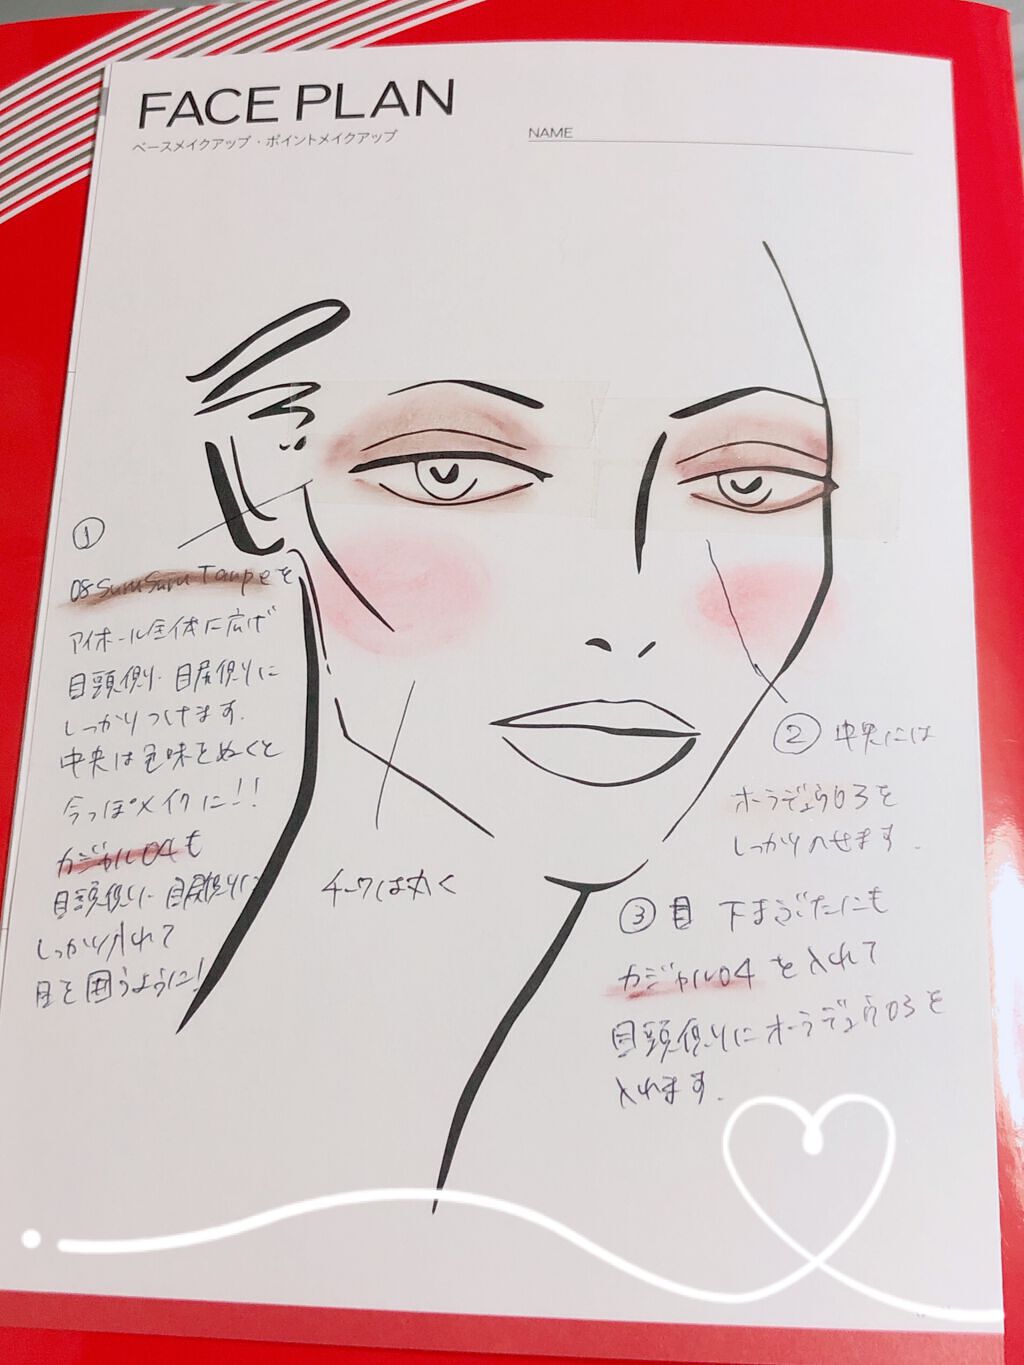 FACE PLAN
ベースメイクアップ・ポイントメイクアップ
NAME
①
08 SuruSuru Taupeを
アイホール全体に広げ
目頭側・目尻側に
しっかりつけます.
中央は色味をぬくと
今っぽメイクに!!
カジャル04も
目頭側・目尻側に
しっかり入れて
目を囲うように!
チークは丸く
② 中央には
オーラデュウ03を
しっかりのせます.
③ 目 下まぶたにも
カジャル04を入れて
目頭側にオーラデュウ03を
入れます.